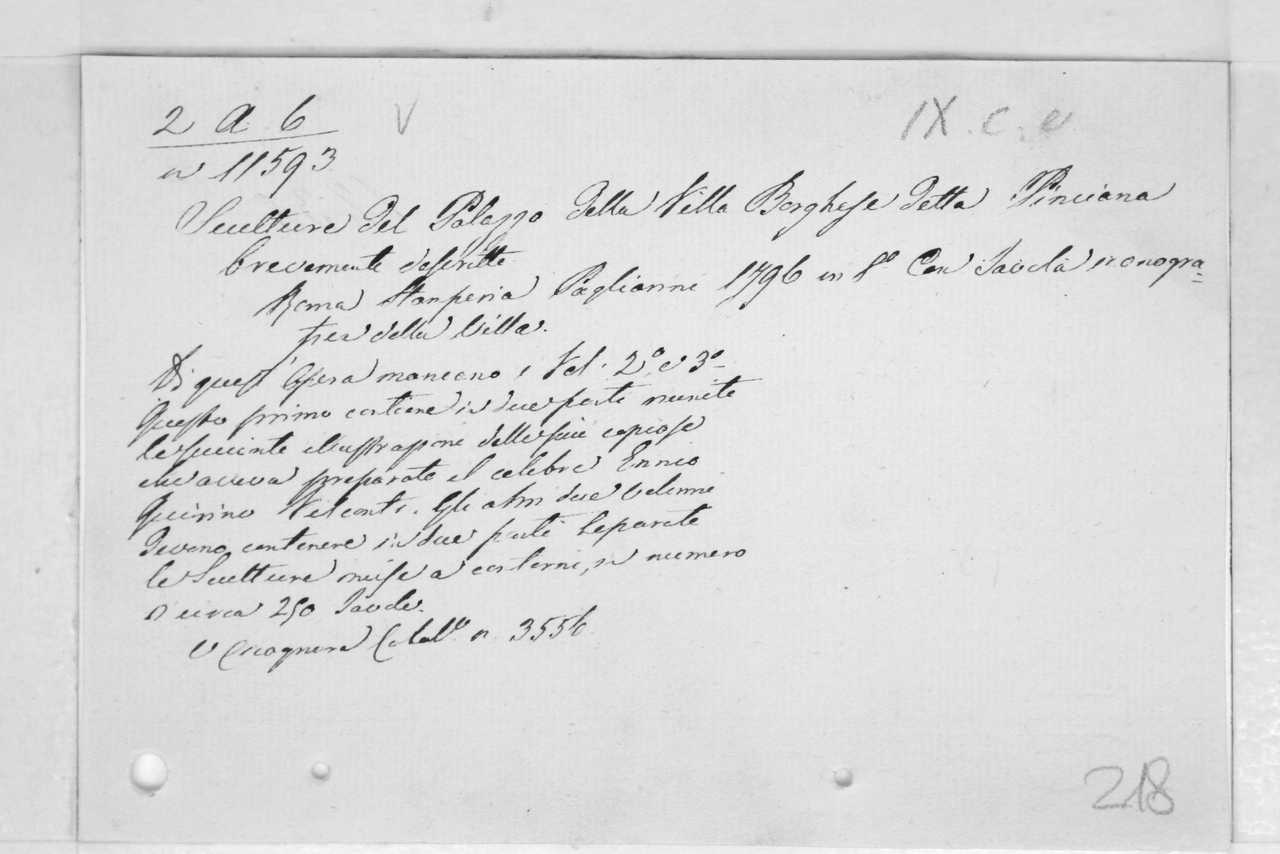 2 a. 6
V
IX. c. e
n 11593
Sculture del Palazzo della Villa Borghese detta Pinciana
brevemente descritte
Roma Stamperia Pagliarini 1796 in 8° Con Tavola icnogra-
fica della Villa.
Di quest' Opera mancano i Vol. 2° e 3°
Questo primo contiene in due parti riunite
le succinte illustrazione delle più copiose
che aveva preparato il celebre Ennio
Quirino Visconti. Gli altri due volumi
devono contenere in due parti separate
le Sculture incise a contorni, in numero
circa 250 Tavole.
V Cicognara Catal° n. 3556
218